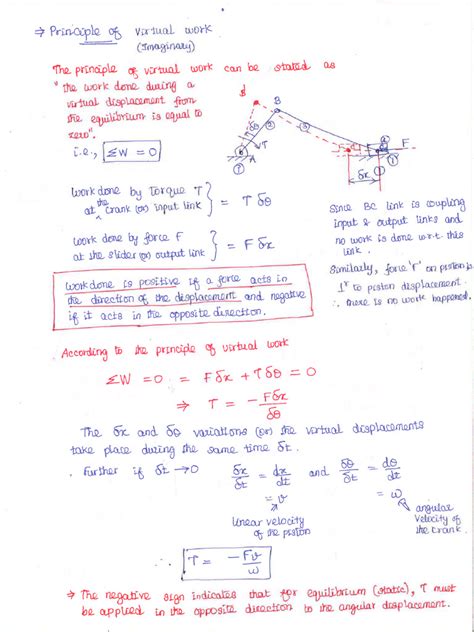 ⇒ Principle of virtual work
(Imaginary)
The principle of virtual work can be stated as
"the work done during a
virtual displacement from
the equilibrium is equal to
zero".
i.e., ΣW = 0
B
B
δθ
2
3
T
A
1
4
F
1
δx
work done by Torque T
at the crank (or) input link } = T δθ
work done by force F
at the slider (or) output link } = F δx
Since BC link is coupling
input & output links and
no work is done w.r.t. this
link.
Similarly, force 'F' on piston is
1r to piston displacement.
∴ there is no work happened.
Work done is positive if a force acts in
the direction of the displacement and negative
if it acts in the opposite direction.
According to the principle of virtual work
ΣW = 0 = Fδx + Tδθ = 0
⇒ T = -Fδx/δθ
The δx and δθ variations (or) the virtual displacements
take place during the same time δt.
Further if δt → 0 δx/δt = dx/dt and δθ/δt = dθ/dt
= v = ω
linear velocity
of the piston
angular
velocity of
the crank.
∴ T = -Fv/ω
⇒ The negative sign indicates that for equilibrium (static), T must
be applied in the opposite direction to the angular displacement.